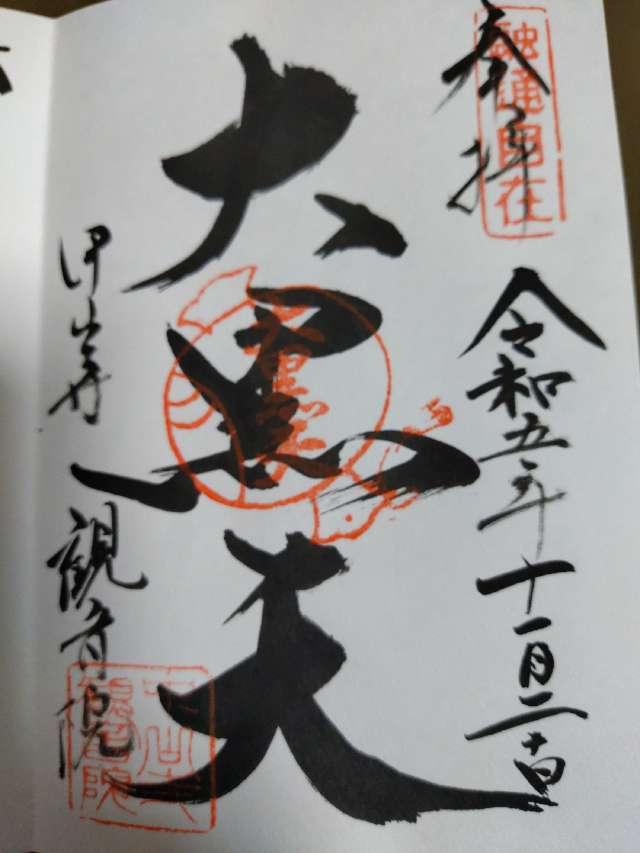 奉拝
融通自在
令和五年十一月二十日
大黒天
中山寺
観音院